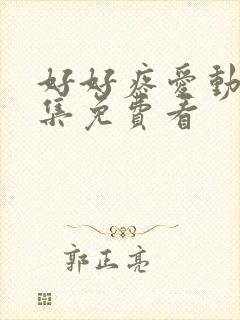 好好疼愛動
集免費看
郭正亮